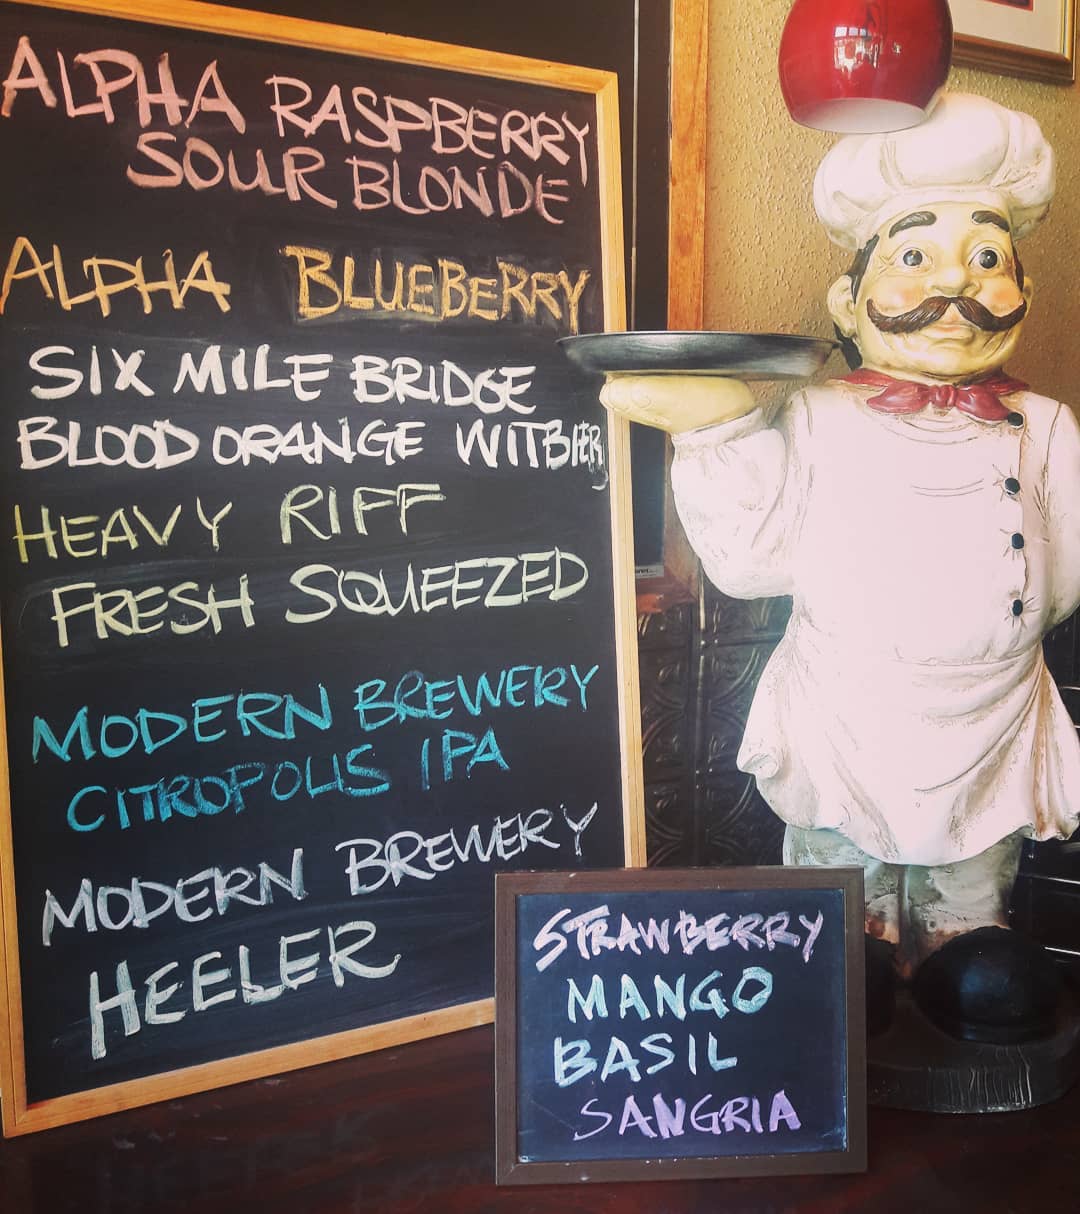 ALPHA RASPBERRY
SOUR BLONDE
ALPHA BLUEBERRY
SIX MILE BRIDGE
BLOOD ORANGE WITBIER
HEAVY RIFF
FRESH SQUEEZED
MODERN BREWERY
CITROPOLIS IPA
MODERN BREWERY
HEELER
STRAWBERRY
MANGO
BASIL
SANGRIA